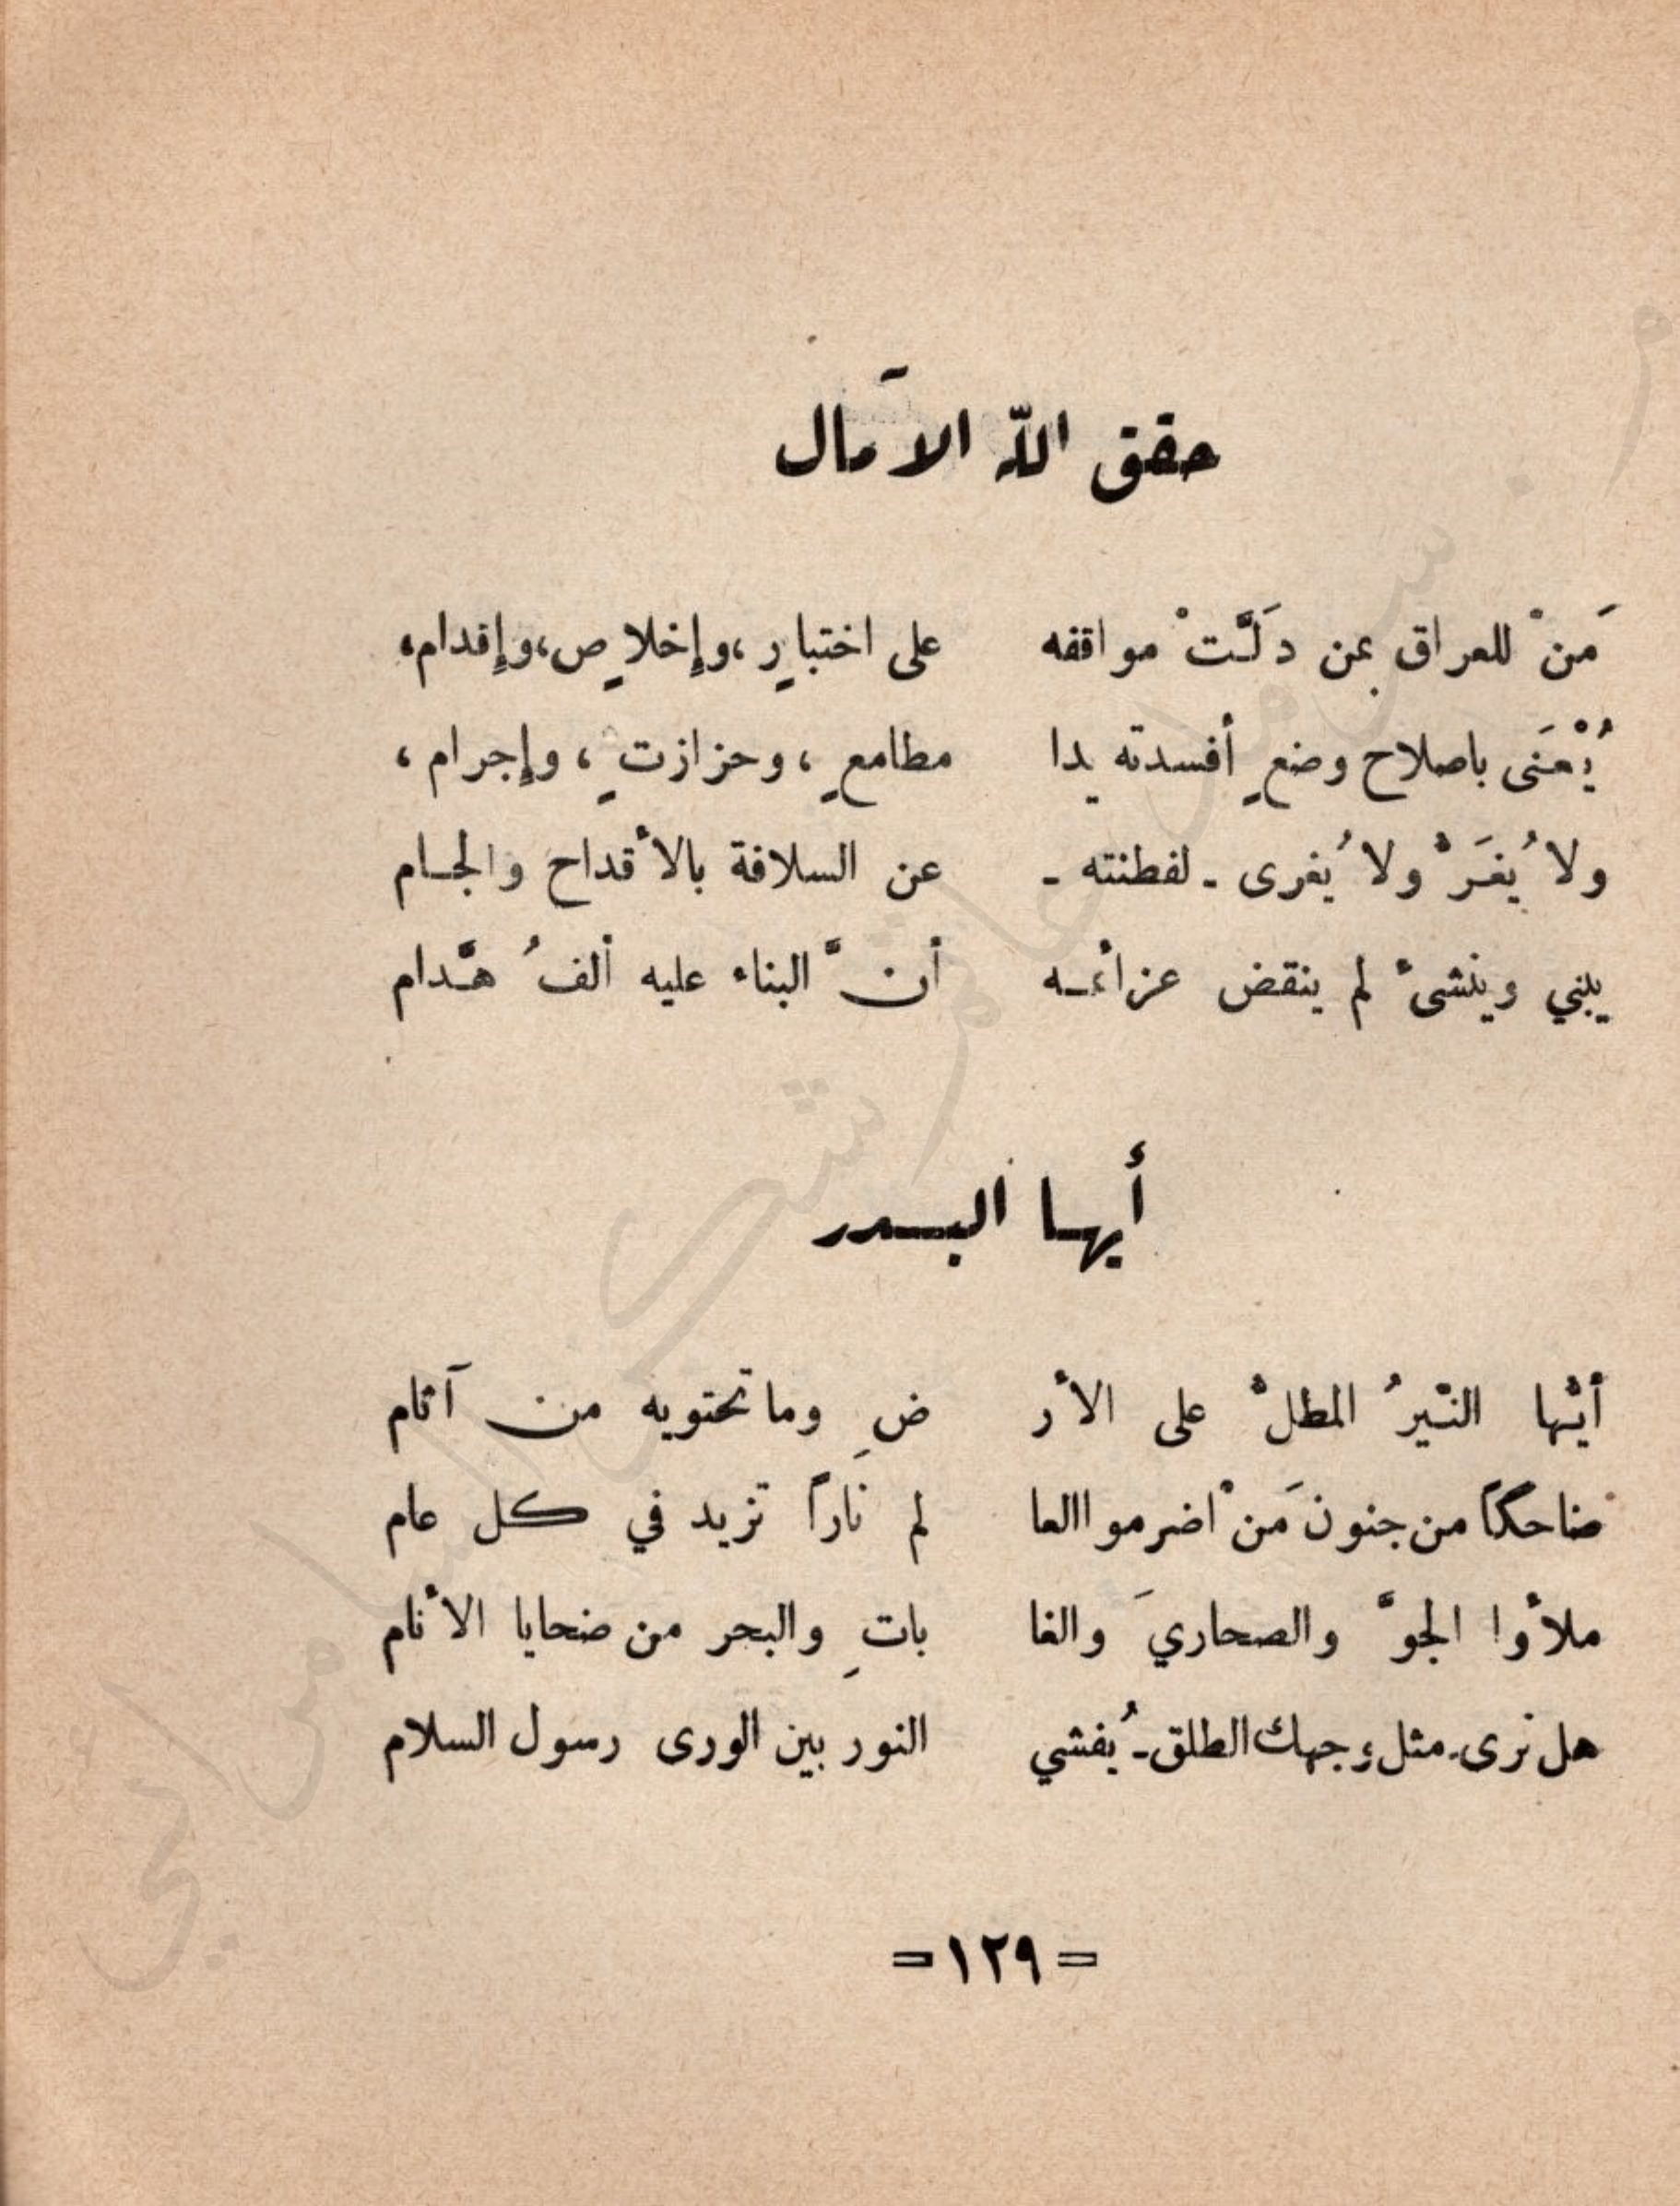 حقق الله الآمال
مَنْ للعراق بمن دَلَّتْ مواقفه على اختبارٍ، وإخلاصٍ، وإقدام،
يُعْنَى باصلاح وضعٍ أفسدته يدا مطامعٍ، وحزازتٍ، وإجرام،
ولا يُغَرّ ولا يُغرى - لفطنته - عن السلافة بالأقداح والجام
يبني وينشئ لم ينقض عزائمه أنَّ البناء عليه ألفُ هدّام
أيها البدر
أيّها النيّرُ المطلّ على الأر ضِ وما تحتويه من آثام
ضاحكاً من جنون مَنْ اضرموا العا لم ناراً تزيد في كل عام
ملأوا الجوَّ والصحاريَ والغا باتِ والبحر من ضحايا الأنام
هل نرى - مثل وجهك الطلق - يُفشي النور بين الورى رسول السلام
= ١٢٩ =